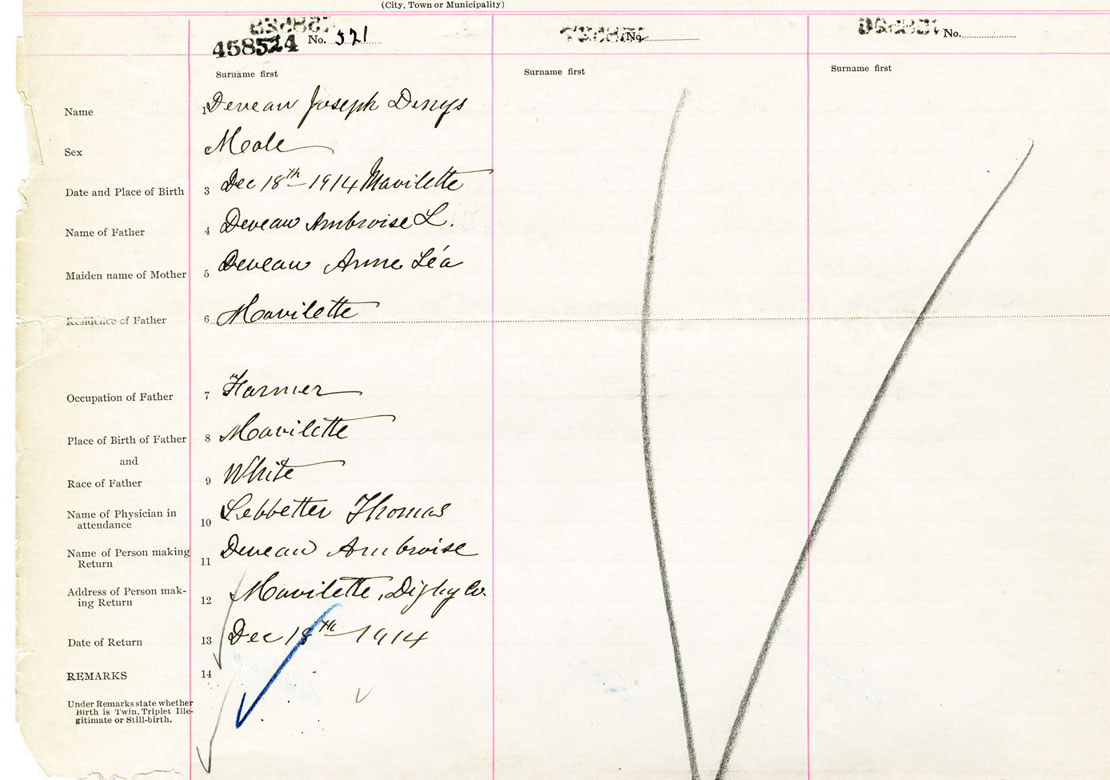 (City, Town or Municipality)
458524 No. 521
No.
No.
Surname first
Surname first
Surname first
Name 1 Deveau Joseph Denys
Sex Male
Date and Place of Birth 3 Dec 18th 1914 Mavilette
Name of Father 4 Deveau Ambroise L.
Maiden name of Mother 5 Deveau Anne Léa
Residence of Father 6 Mavilette
Occupation of Father 7 Farmer
Place of Birth of Father 8 Mavilette
and
Race of Father 9 White
Name of Physician in
attendance 10 Lebbetter Thomas
Name of Person making
Return 11 Deveau Ambroise
Address of Person mak-
ing Return 12 Mavilette, Digby Co.
Date of Return 13 Dec 18th 1914
REMARKS 14
Under Remarks state whether
Birth is Twin, Triplet Ille-
gitimate or Still-birth.